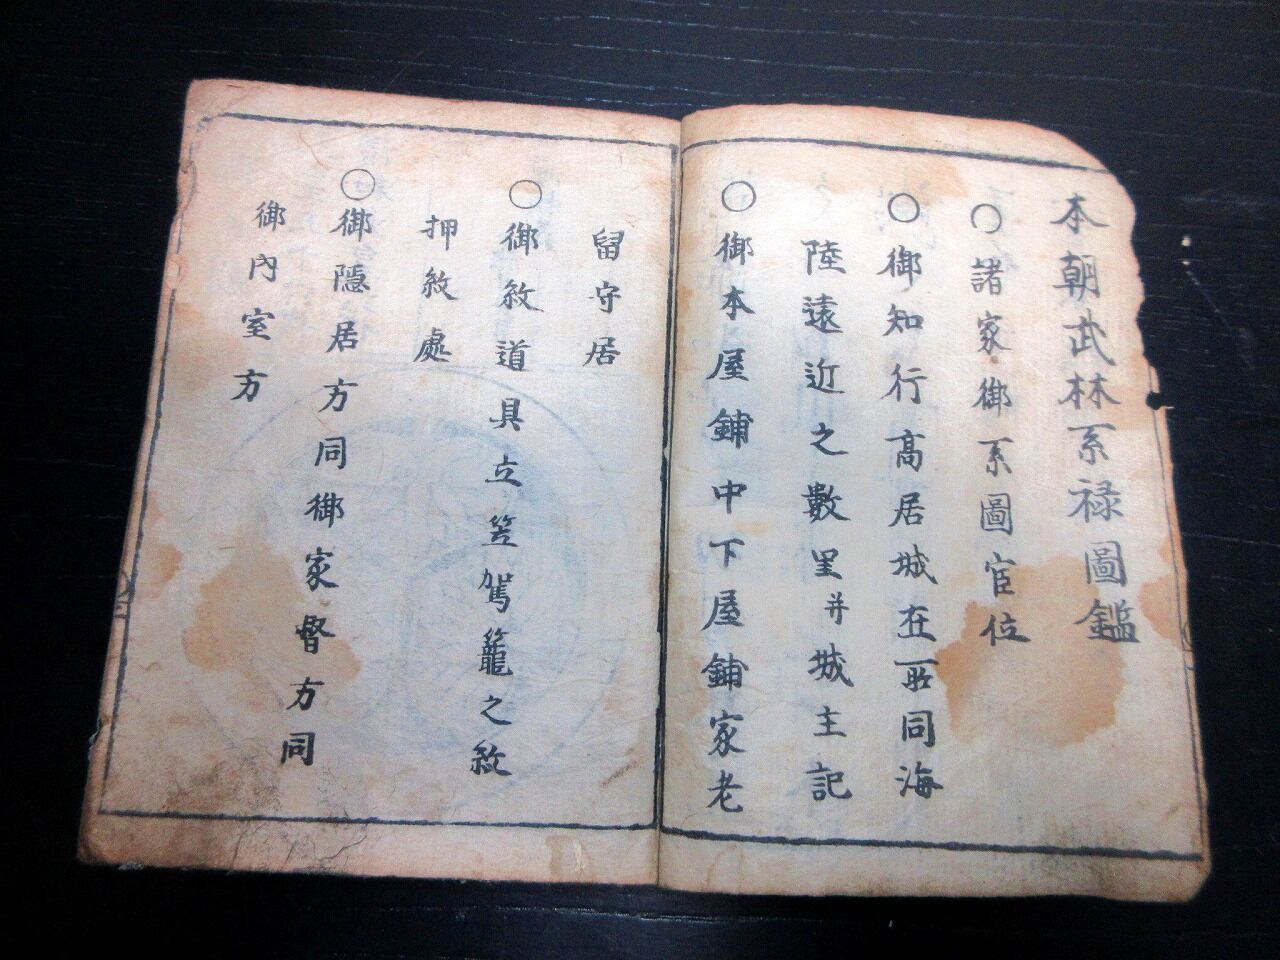 本朝武林系禄圖鑑
○諸家御系圖官位
○御知行高居城在所同海
陸遠近之數里并城主記
○御本屋鋪中下屋鋪家老
留守居
○御紋道具立笠駕籠之紋
押紋處
○御隱居方同御家督方同
御內室方